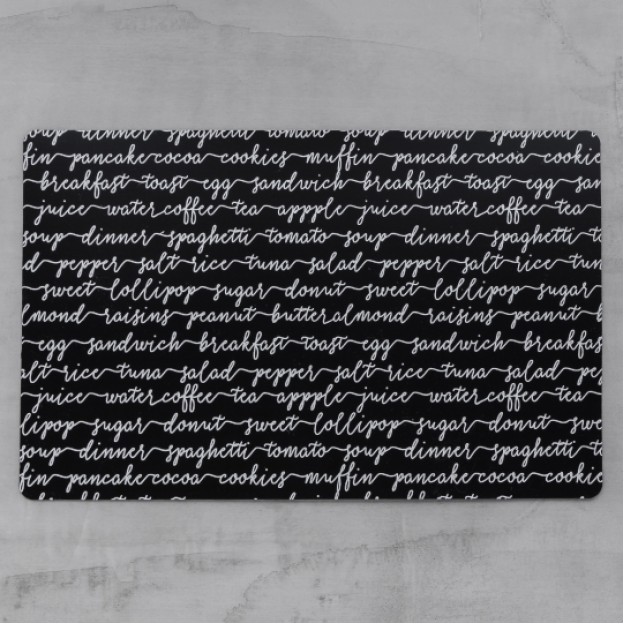 soup dinner spaghetti tomato soup dinner spaghetti
fin pancake cocoa cookies muffin pancake cocoa cookies
breakfast toast egg sandwich breakfast toast egg san
juice water coffee tea appple juice water coffee tea
soup dinner spaghetti tomato soup dinner spaghetti to
d pepper salt rice tuna salad pepper salt rice tuna
sweet lollipop sugar donut sweet lollipop sugar
lmond raisins peanut butter almond raisins peanut b
egg sandwich breakfast toast egg sandwich breakfas
alt rice tuna salad pepper salt rice tuna salad pe
juice water coffee tea appple juice water coffee tea
lipop sugar donut sweet lollipop sugar donut swe
soup dinner spaghetti tomato soup dinner spaghetti t
fin pancake cocoa cookies muffin pancake cocoa cookies